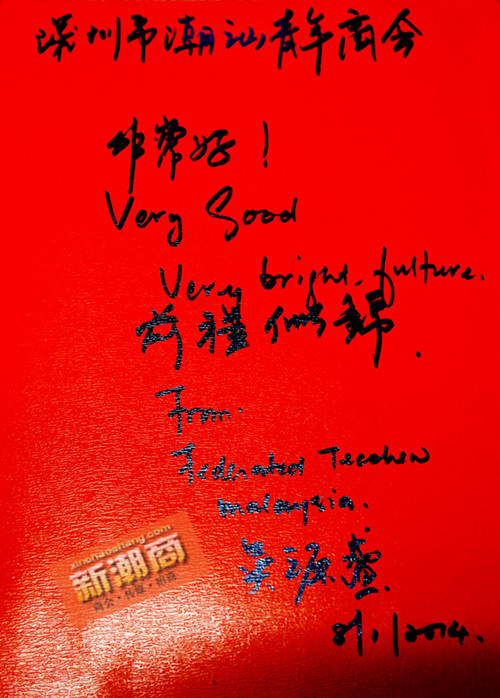 深圳市潮汕青年商会
非常好！
Very Good
Very bright future.
前程似锦.
From.
Federated Teochew
malaysia.
吴源盛
8/1/2014.
xinchaoshang.com
新潮商